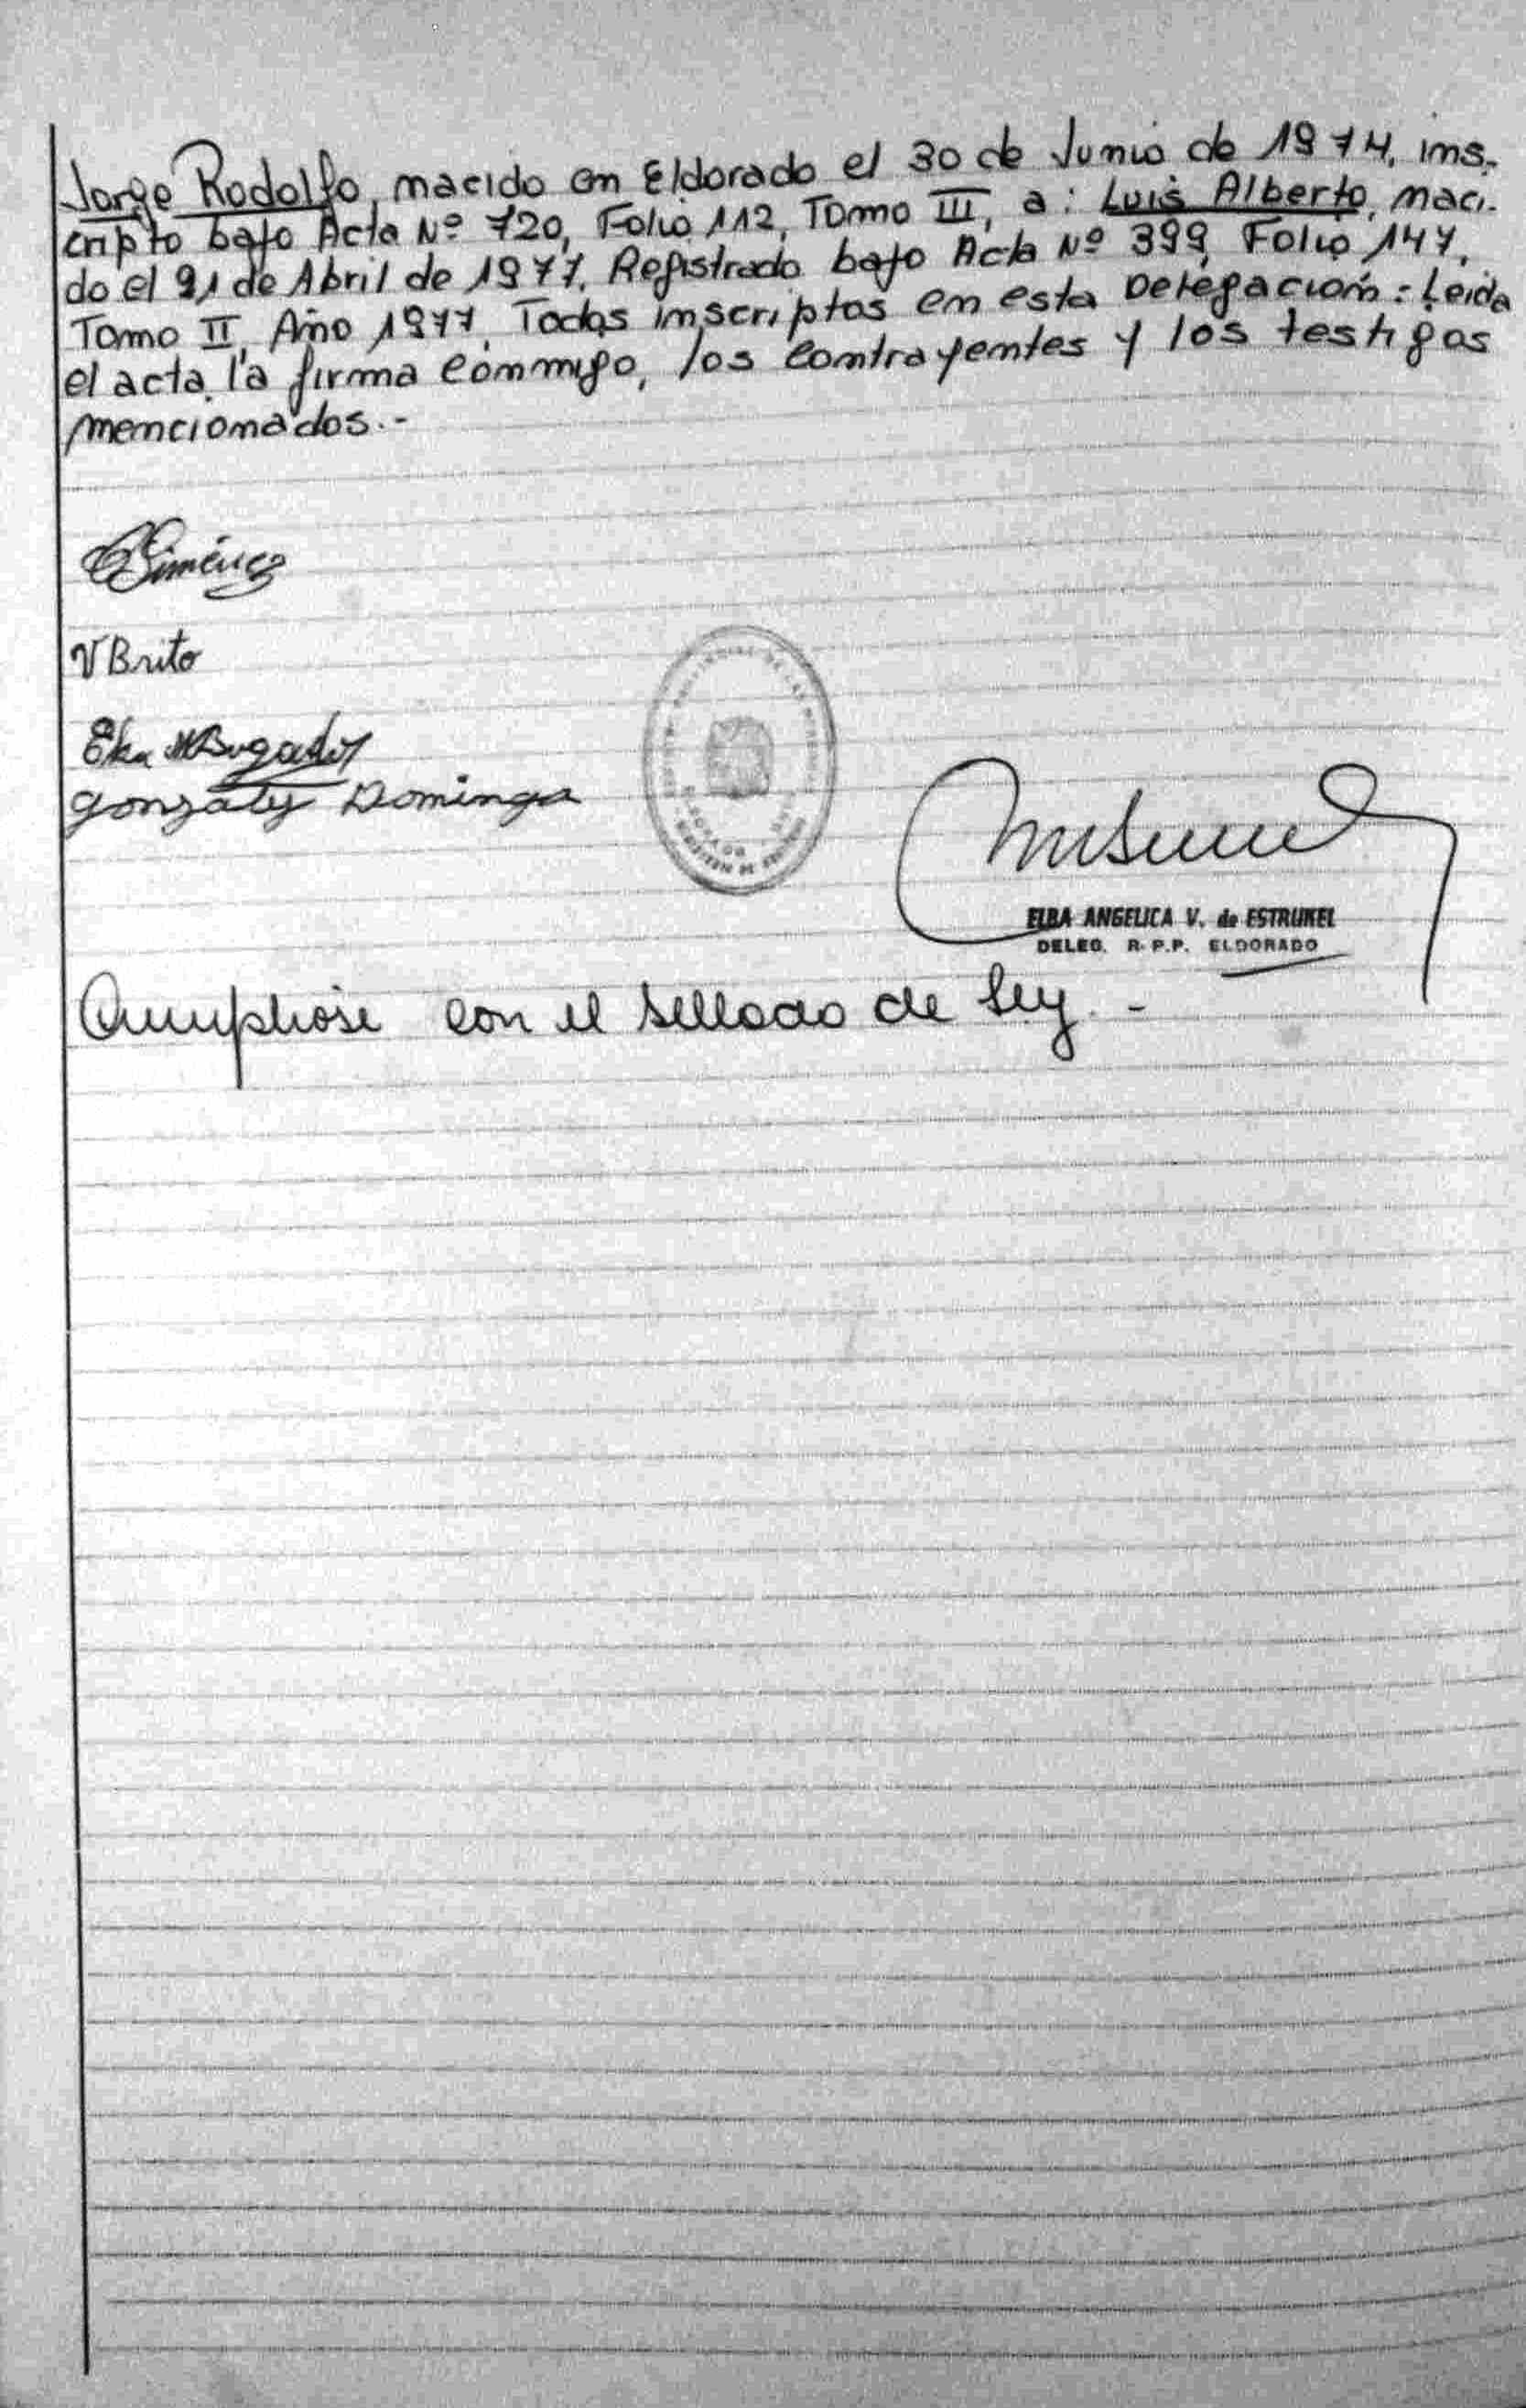 Jorge Rodolfo, nacido en Eldorado el 30 de Junio de 1974, ins-
cripto bajo Acta Nº 720, Folio 112, Tomo III, a: Luis Alberto, naci-
do el 21 de Abril de 1977, Registrado bajo Acta Nº 399, Folio 147,
Tomo II, Año 1977, Todos inscriptos en esta Delegación: Leida
el acta, la firma conmigo, los contrayentes y los testigos
mencionados.-
Giménez
V Brito
González Dominga
ELBA ANGELICA V. de ESTRUKEL
DELEG. R. P.P. ELDORADO
Cumplióse con el sellado de ley. -